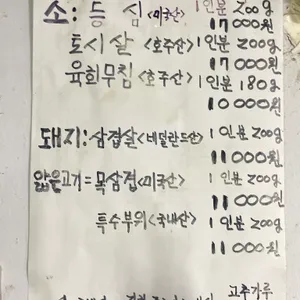 소: 등심 <미국산> 1인분 200g
17000원
토시살 <호주산> 1인분 200g
17000원
육회무침 <호주산> 1인분 180g
10000원
돼지: 삼겹살 <네덜란드산> 1인분 200g
11000원
얇은고기= 목삼겹 <미국산> 1인분 200g
11000원
특수부위 <국내산> 1인분 200g
11000원
고추가루